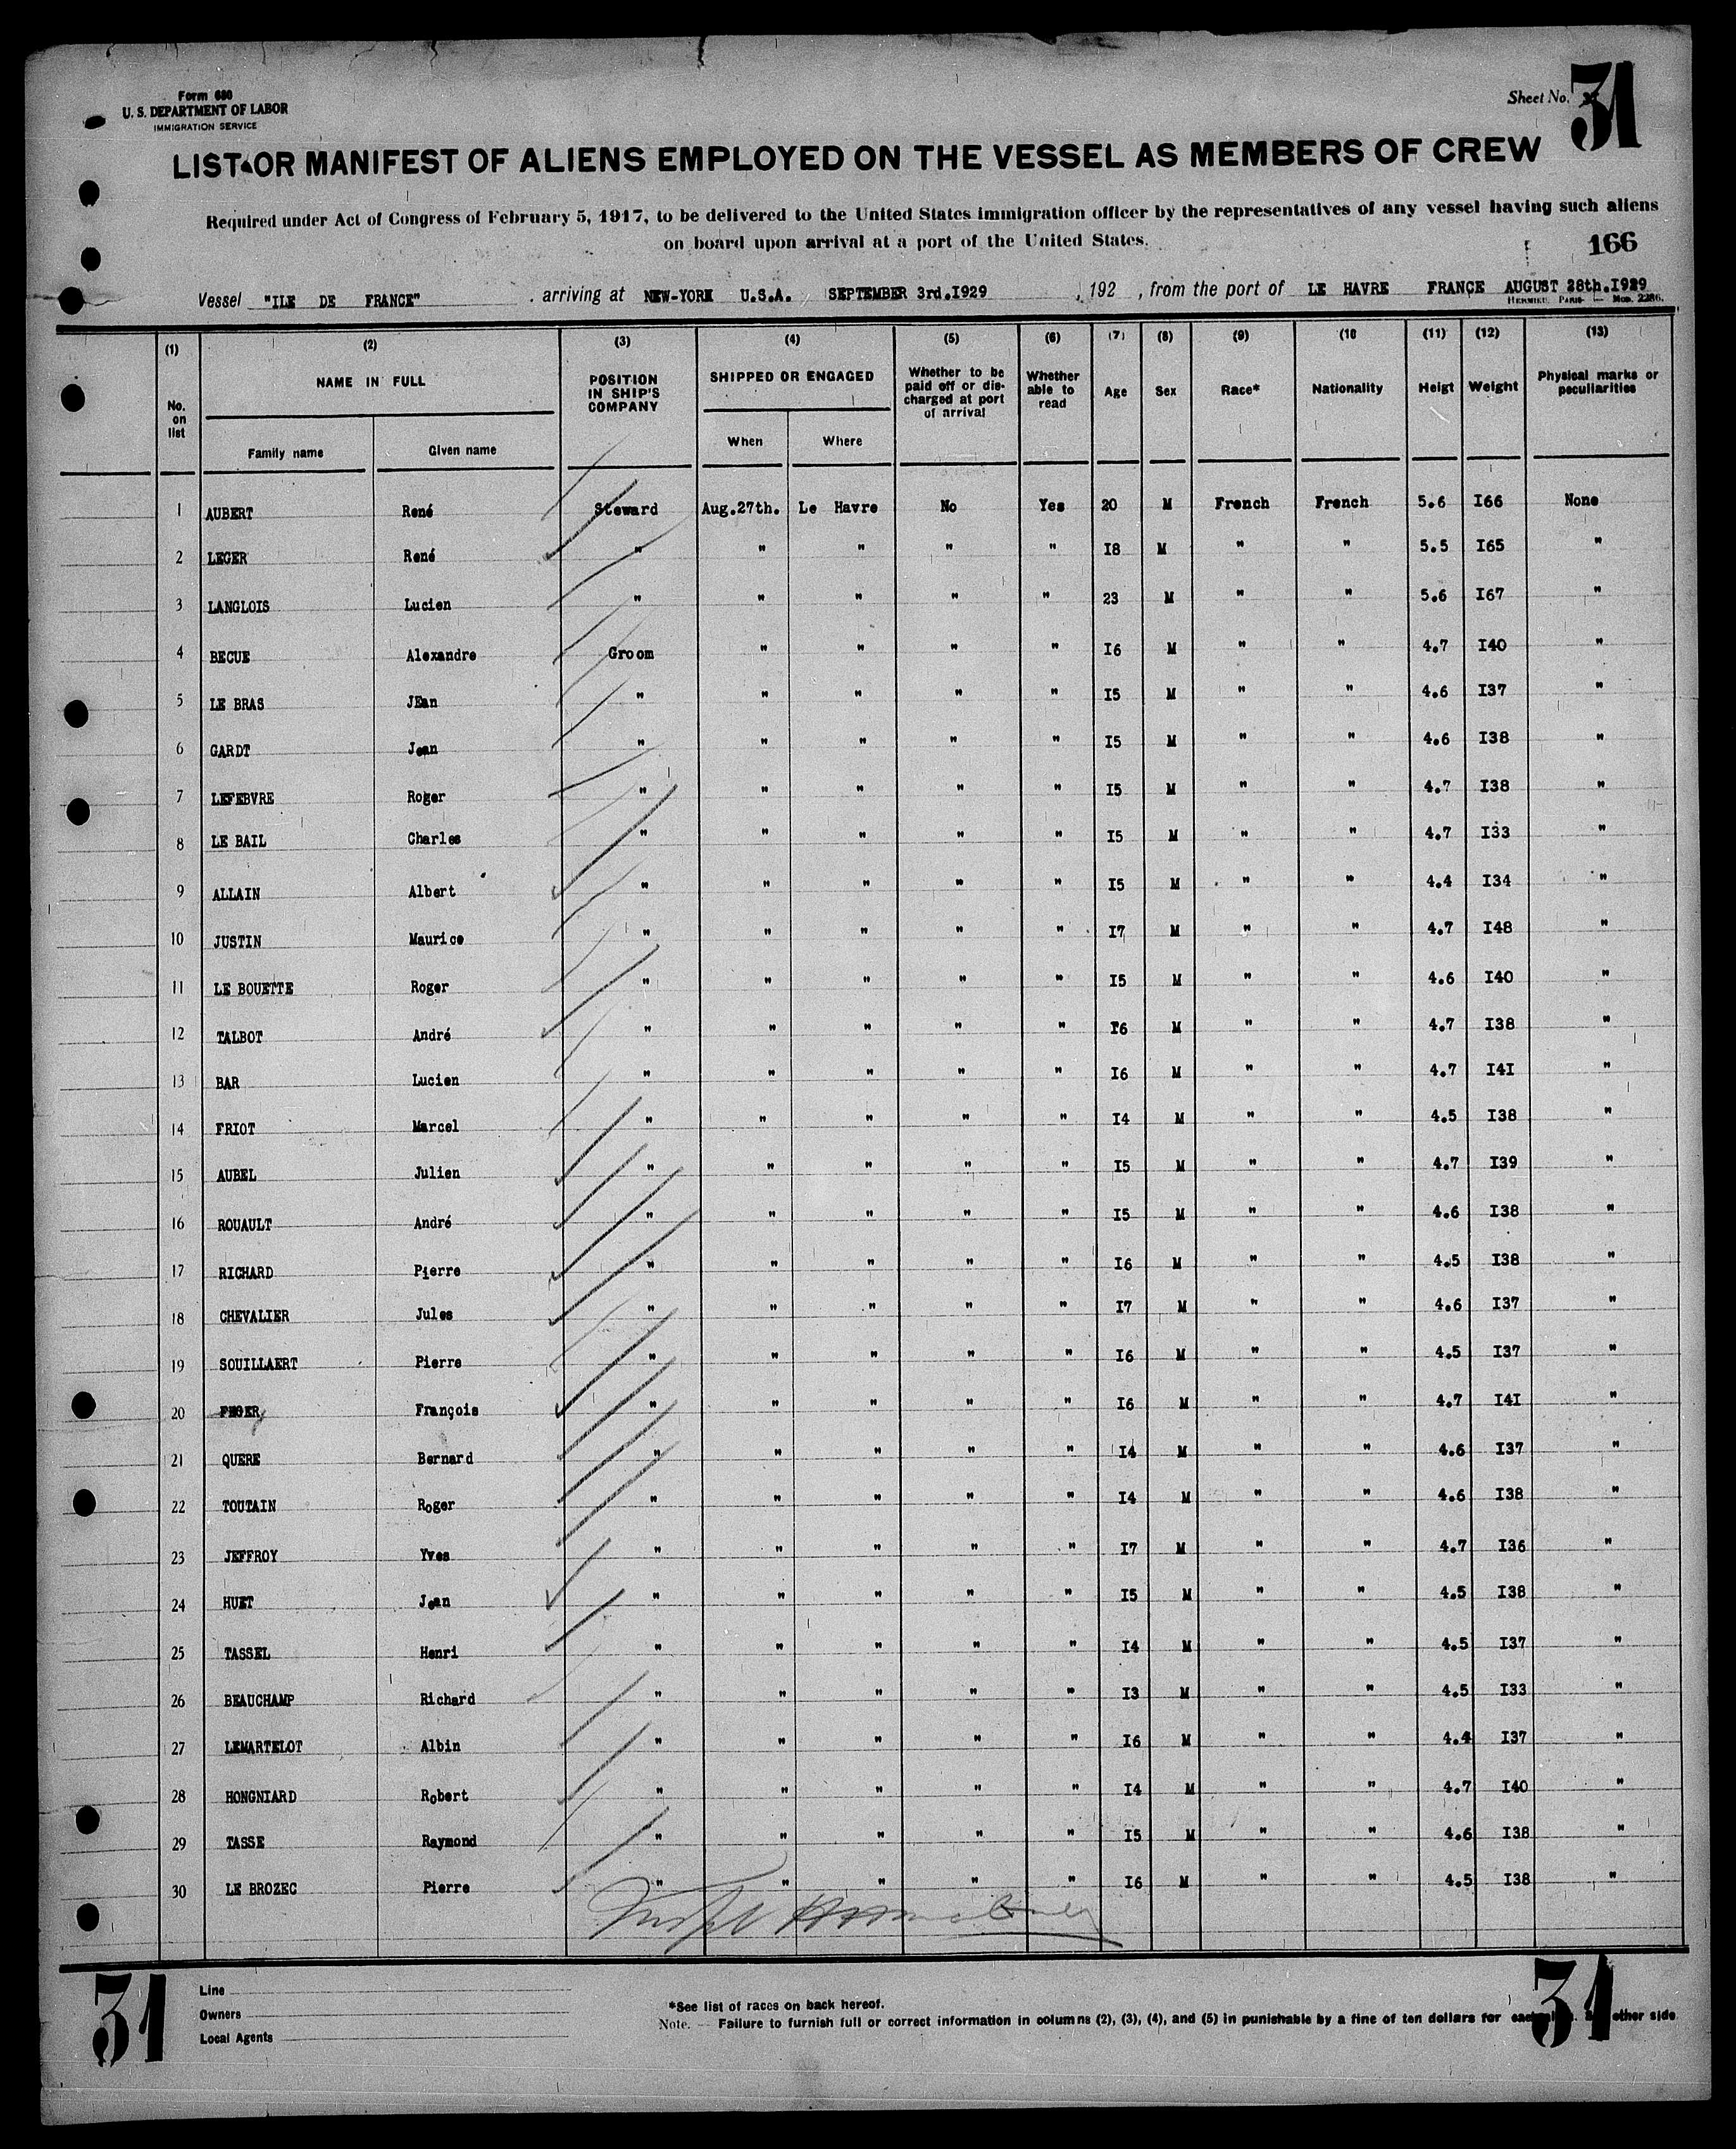 Form 680
U. S. DEPARTMENT OF LABOR
IMMIGRATION SERVICE
Sheet No. 31
LIST OR MANIFEST OF ALIENS EMPLOYED ON THE VESSEL AS MEMBERS OF CREW
Required under Act of Congress of February 5, 1917, to be delivered to the United States immigration officer by the representatives of any vessel having such aliens
on board upon arrival at a port of the United States.
166
Vessel "ILE DE FRANCE" . arriving at NEW-YORK U.S.A. SEPTEMBER 3rd.I929 , 192 , from the port of LE HAVRE FRANCE AUGUST 28th.I929
HERMIEU, PARIS — MOD. 2286.
(1) (2) (3) (4) (5) (6) (7) (8) (9) (10 (11) (12) (13)
No. on list NAME IN FULL POSITION IN SHIP'S COMPANY SHIPPED OR ENGAGED Whether to be paid off or dis- charged at port of arrival Whether able to read Age Sex Race* Nationality Heigt Weight Physical marks or peculiarities
Family name Given name When Where
1 AUBERT René Steward Aug.27th. Le Havre No Yes 20 M French French 5.6 I66 None
2 LEGER René " " " " " I8 M " " 5.5 I65 "
3 LANGLOIS Lucien " " " " " 23 M " " 5.6 I67 "
4 BECUE Alexandre Groom " " " " I6 M " " 4.7 I40 "
5 LE BRAS JEan " " " " " I5 M " " 4.6 I37 "
6 GARDT Jean " " " " " I5 M " " 4.6 I38 "
7 LEFEBVRE Roger " " " " " I5 M " " 4.7 I38 "
8 LE BAIL Charles " " " " " I5 M " " 4.7 I33 "
9 ALLAIN Albert " " " " " I5 M " " 4.4 I34 "
10 JUSTIN Maurice " " " " " I7 M " " 4.7 I48 "
11 LE BOUETTE Roger " " " " " I5 M " " 4.6 I40 "
12 TALBOT André " " " " " I6 M " " 4.7 I38 "
13 BAR Lucien " " " " " I6 M " " 4.7 I4I "
14 FRIOT Marcel " " " " " I4 M " " 4.5 I38 "
15 AUBEL Julien " " " " " I5 M " " 4.7 I39 "
16 ROUAULT André " " " " " I5 M " " 4.6 I38 "
17 RICHARD Pierre " " " " " I6 M " " 4.5 I38 "
18 CHEVALIER Jules " " " " " I7 M " " 4.6 I37 "
19 SOUILLAERT Pierre " " " " " I6 M " " 4.5 I37 "
20 François " " " " " I6 M " " 4.7 I4I "
21 QUERE Bernard " " " " " I4 M " " 4.6 I37 "
22 TOUTAIN Roger " " " " " I4 M " " 4.6 I38 "
23 JEFFROY Yves " " " " " I7 M " " 4.7 I36 "
24 HUET Jean " " " " " I5 M " " 4.5 I38 "
25 TASSEL Henri " " " " " I4 M " " 4.5 I37 "
26 BEAUCHAMP Richard " " " " " I3 M " " 4.5 I33 "
27 LEMARTELOT Albin " " " " " I6 M " " 4.4 I37 "
28 HONGNIARD Robert " " " " " I4 M " " 4.7 I40 "
29 TASSE Raymond " " " " " I5 M " " 4.6 I38 "
30 LE BROZEC Pierre " " " " " I6 M " " 4.5 I38 "
31 31
Line
Owners
Local Agents
*See list of races on back hereof.
Note. — Failure to furnish full or correct information in columns (2), (3), (4), and (5) in punishable by a fine of ten dollars for other side